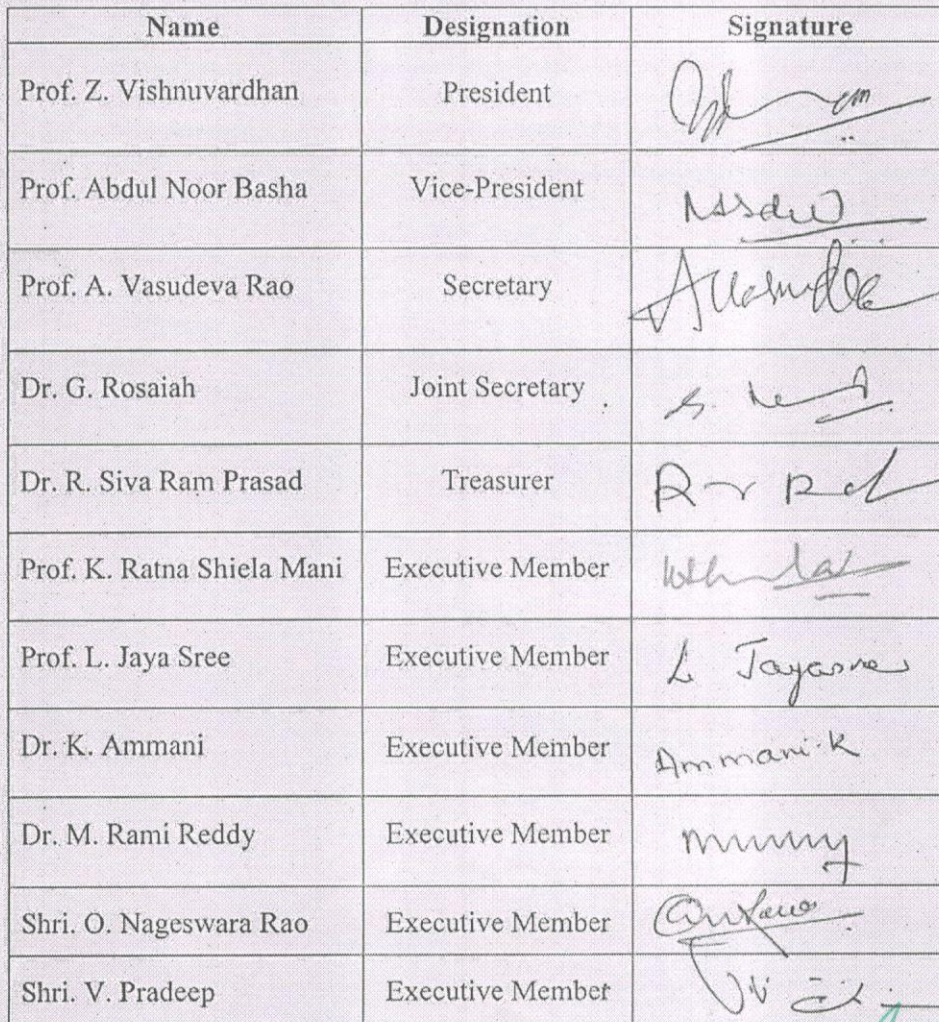 Name Designation Signature
Prof. Z. Vishnuvardhan President
Prof. Abdul Noor Basha Vice-President
Prof. A. Vasudeva Rao Secretary
Dr. G. Rosaiah Joint Secretary
Dr. R. Siva Ram Prasad Treasurer
Prof. K. Ratna Shiela Mani Executive Member
Prof. L. Jaya Sree Executive Member L Jayasree
Dr. K. Ammani Executive Member Ammani.K
Dr. M. Rami Reddy Executive Member
Shri. O. Nageswara Rao Executive Member
Shri. V. Pradeep Executive Member